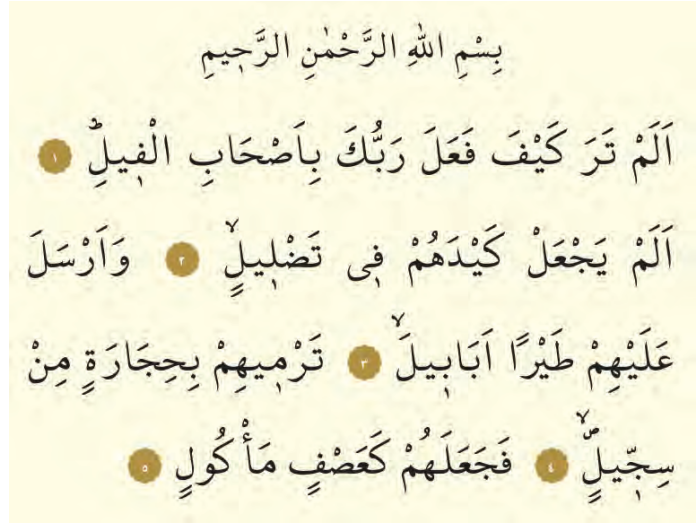 بِسْمِ اللهِ الرَّحْمٰنِ الرَّحٖيمِ
اَلَمْ تَرَ كَيْفَ فَعَلَ رَبُّكَ بِاَصْحَابِ الْفٖيلِؕ ١
اَلَمْ يَجْعَلْ كَيْدَهُمْ فٖى تَضْلٖيلٍۙ ٢ وَاَرْسَلَ
عَلَيْهِمْ طَيْرًا اَبَابٖيلَۙ ٣ تَرْمٖيهِمْ بِحِجَارَةٍ مِنْ
سِجّٖيلٍۙࣕ ٤ فَجَعَلَهُمْ كَعَصْفٍ مَأْكُولٍ ٥